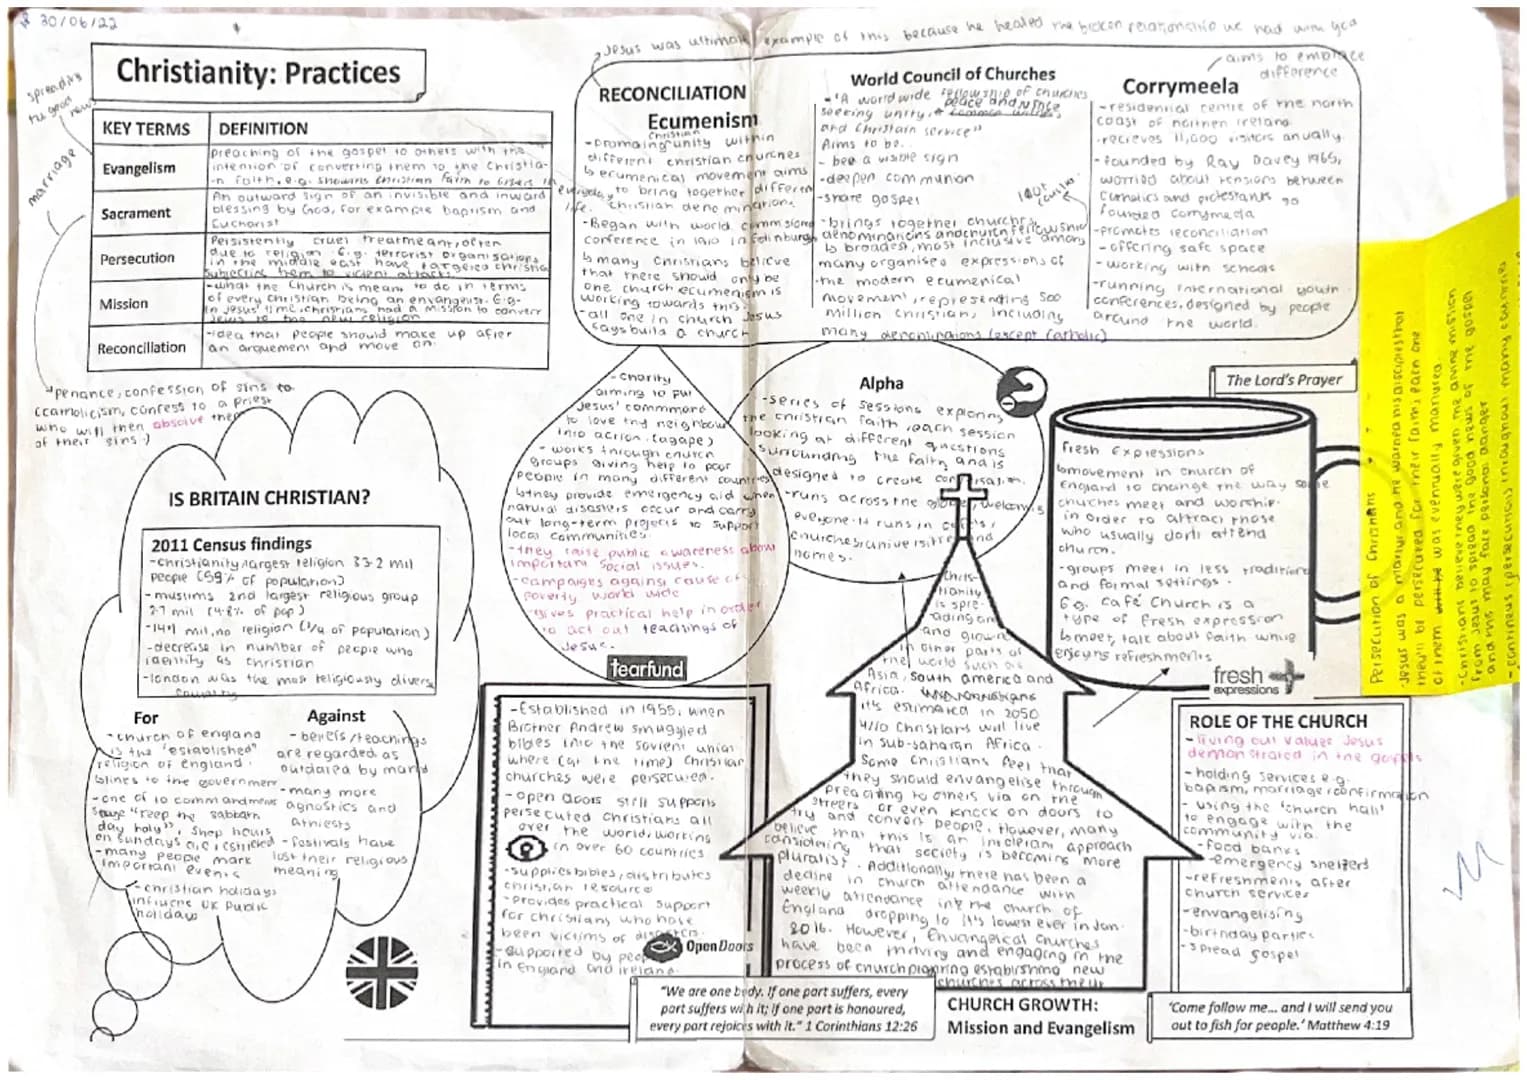 30/06/22
Jesus was ultimate example of this because he healed the broken relationship we had with god
spreading
the good
news
marriage
Christianity: Practices
KEY TERMS
DEFINITION
Evangelism
preaching of the gospel to others with the
intention of converting them to the Christia-
n faith, e.g. showing Christian faith to others in everyday life.
Sacrament
An outward sign of an invisible and inward
blessing by God, for example baptism and
Eucharist
Persecution
Persistently cruel treatment, often
due to religion. E.g. terrorist organisations
in the middle east have targeted christia
subjecting them to violent attacks.
Mission
-what the church is meant to do in terms
of every christian being an envangelist. E.g.
in Jesus' time, christians had a mission to convert
Jews to the new religion
Reconciliation
-idea that people should make up after
an arguement and move on.
penance, confession of sins to
(catholicism, confess to a priest
who will then absolve them
of their sins.)
RECONCILIATION
Ecumenism
Christian
-promoting unity within
different christian churches
ecumenical movement aims
to bring together different
christian denominations
-Began with world commisions
conference in 1910 in Edinburgh
many Christians believe
that there should only be
one church ecumenism is
working towards this
-all one in church Jesus
says build a church
World Council of Churches
-"A worldwide fellowship of churches
peace and
seeking unity, a common witness
and Christain service"
Aims to be..
- bee a visible sign
-deepen communion
-share gospel
-brings together churchs,
denominations and church fellowship
is broadest, most inclusive among
many organised expressions of
the modern ecumenical
movement, representing 500
million christian, including
many denominations (except Catholic)
aims to embrace
difference
Corrymeela
-residential centre of the north
coast of northen Ireland
-recieves 11,000 visitors anually.
-founded by Ray Davey 1965,
worried about tensions between
Catholics and protestants so
founded corrymeela
-promotes reconciliation
-offering safe space
-working with schools
-running international youth
conferences, designed by people
around the world.
-Charity
aiming to put
Jesus' commmard
to love thy neighbour
into action. (agape)
-works through church
groups giving help to poor
people in many different countries
they provide emergency aid when
natural disasters occur and carry
out long-term projects to support
local communities.
-they raise public awareness about
important social issues.
-campaigns against cause of
poverty world wide
-gives practical help in order
to act out teachings of
Jesus.
tearfund
Alpha
-series of sessions exploring
the christian faith, each session
looking at different questions
surrounding the faith and is
designed to create conversation.
-runs across the globe, welcoming
everyone. It runs in cafes,
churches, universities and
homes.
The Lord's Prayer
Fresh Expressions
movement in church of
England to change the way some
churches meet and worship.
in order to attract those
who usually don't attend
church.
-groups meet in less traditional
and formal settings.
E.g. café Church is a
type of Fresh expression
meet, talk about faith while
enjoying refreshments
fresh
expressions
Persecution of Christians
-Jesus was a martyr and he warned his disciples that
they'll be persecuted for their faith, each one
of them was eventually martyred.
-Christians believe they were given the divine mission
from Jesus to spread the good news of the gospel
and this may face personal danger
-continues (persecution) throughout many countries
IS BRITAIN CHRISTIAN?
2011 Census findings
-christianity largest religion 33.2 mil
people (59% of population)
-muslims 2nd largest religious group
2.7 mil (4.8% of pop)
-14.1 mil, no religion (1/4 of population)
-decrease in number of people who
identify as christian
-london was the most religiously divers
For
-church of england
is the "established"
religion of england.
links to the government
-one of 10 commandments
"keep the sabbath
day holy", shop hours
on sundays are restricted
-many people mark
important events
-christian holidays
influene UK public
holidays
Against
-beliefs/teachings
are regarded as
outdated by many
-many more
agnostics and
athiests
-festivals have
lost their religious
meaning
-Established in 1955, when
Brother Andrew smuggled
bibles into the soviet union
where (at the time) christian
churches were persecuted.
-open doors still supports
persecuted christians all
over the world, working
in over 60 countries
-supplies bibles, distributes
christian resource
-provides practical support
for christians who have
been victims of disaster.
-supported by people
in England and ireland.
Open Doors
"We are one body. If one part suffers, every
part suffers with it; if one part is honoured,
every part rejoices with it." 1 Corinthians 12:26
Chris-
tianity is
spre-
ading an
and grown
in other parts of
the world such as
Asia, south america and
Africa.
it's estimated in 2050
4/10 Christians will live
in sub-saharan Africa.
Some Christians feel that
they should envangelise through
preaching to others via on the
streets or even knock on doors to
try and convert people. However, many
believe that this is an intolerant approach
considering that society is becoming more
pluralist. Additionally there has been a
decline in church attendance with
weekly attendance in the church of
England dropping to it's lowest ever in Jan.
2016. However, Envangelical churches
have been thriving and engaging in the
process of church planting establishing new
churches across the UK
CHURCH GROWTH:
Mission and Evangelism
ROLE OF THE CHURCH
-living out values Jesus
demonstrated in the gospels
-holding services e.g.
baptism, marriage, confirmation
-using the 'church hall'
to engage with the
community via.
-food banks
-emergency shelters
-refreshments after
church services
-envangelising
-birthday parties
-spread gospel
'Come follow me... and I will send you
out to fish for people.' Matthew 4:19